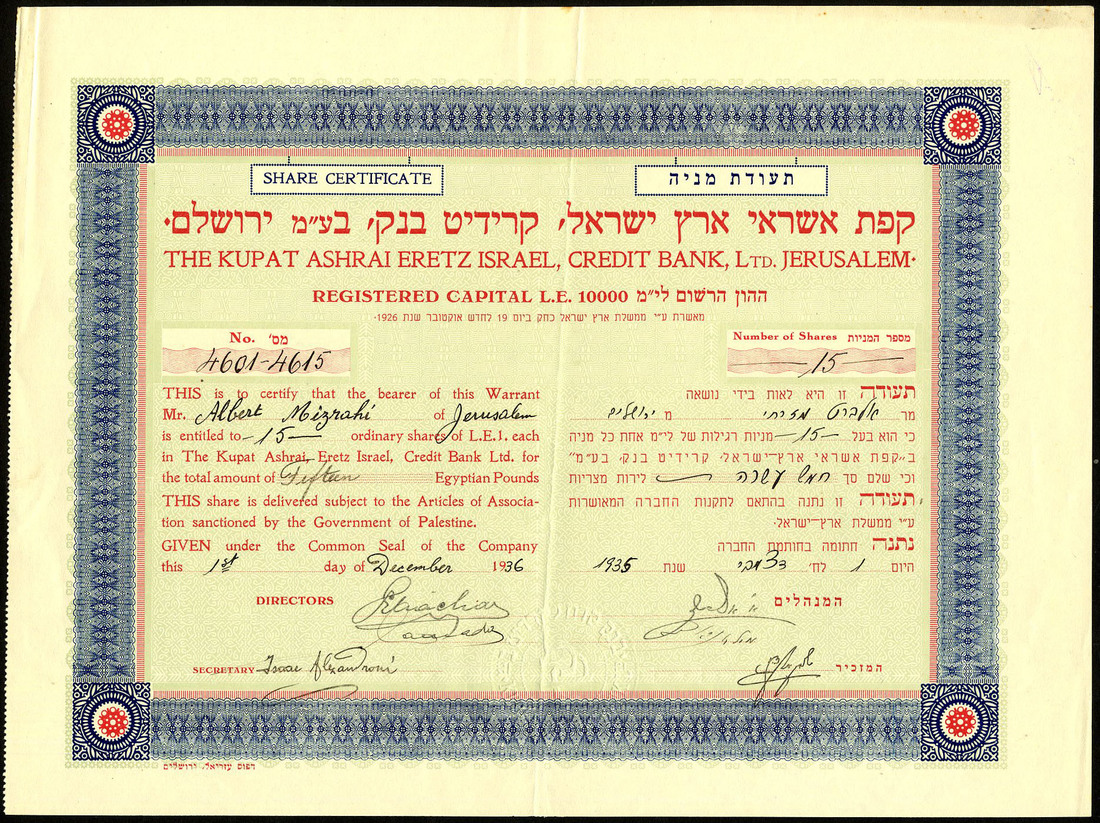 SHARE CERTIFICATE
תעודת מניה
קפת אשראי ארץ ישראל, קרידיט בנק, בע"מ ירושלם.
THE KUPAT ASHRAI ERETZ ISRAEL, CREDIT BANK, LTD. JERUSALEM.
REGISTERED CAPITAL L.E. 10000 ההון הרשום לי"מ
מאשרת ע"י ממשלת ארץ ישראל כחק ביום 19 לחדש אוקטובר שנת 1926.
No. מס'
4601-4615
Number of Shares מספר המניות
15
THIS is to certify that the bearer of this Warrant
Mr. Albert Mizrahi of Jerusalem
is entitled to -15- ordinary shares of L.E.1. each
in The Kupat Ashrai, Eretz Israel, Credit Bank Ltd. for
the total amount of Fifteen Egyptian Pounds
THIS share is delivered subject to the Articles of Associa-
tion sanctioned by the Government of Palestine.
GIVEN under the Common Seal of the Company
this 1st day of December 1936
תעודה זו היא לאות בידי נושאה
מר אלברט מזרחי מ ירושלים
כי הוא בעל -15- מניות רגילות של לי"מ אחת כל מניה
ב"קפת אשראי ארץ-ישראל, קרידיט בנק, בע"מ"
וכי שלם סך חמש עשרה לירות מצריות
תעודה זו נתנה בהתאם לתקנות החברה המאושרות
ע"י ממשלת ארץ-ישראל.
נתנה חתומה בחותמת החברה
היום 1 לח' דצמבר שנת 1935
DIRECTORS
המנהלים
SECRETARY Isaac Alexandroni
המזכיר
דפוס עזריאל, ירושלים